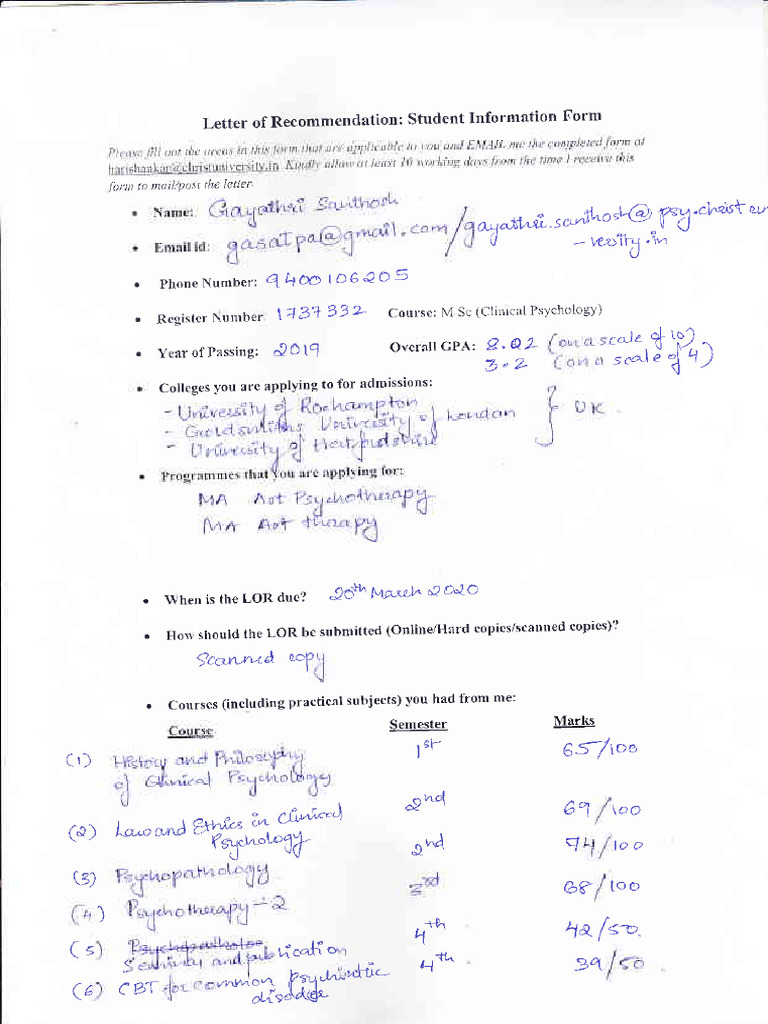 Letter of Recommendation: Student Information Form
Please fill out the areas in this form that are applicable to you and EMAIL me the completed form at
harishankar@christuniversity.in. Kindly allow at least 10 working days from the time I receive this
form to mail/post the letter.
• Name: Gayathri Santhosh
• Email id: gasatpa@gmail.com/gayathri.santhosh@psy.christuni
-versity.in
• Phone Number: 9400106205
• Register Number: 1737332 Course: M Sc (Clinical Psychology)
• Year of Passing: 2019 Overall GPA: 8.02 (on a scale of 10)
3.2 (on a scale of 4)
• Colleges you are applying to for admissions:
- University of Roehampton
- Goldsmiths University of London } UK.
- University of Hertfordshire
• Programmes that you are applying for:
MA Art Psychotherapy
MA Art therapy
• When is the LOR due? 20th March 2020
• How should the LOR be submitted (Online/Hard copies/scanned copies)?
Scanned copy
• Courses (including practical subjects) you had from me:
Course Semester Marks
(1) History and Philosophy 1st 65/100
of Clinical Psychology
(2) Law and Ethics in Clinical 2nd 69/100
Psychology
(3) Psychopathology 2nd 74/100
(4) Psychotherapy - 2 3rd 68/100
(5) 4th 42/50.
and publication
(6) CBT for common psychiatric 4th. 39/50